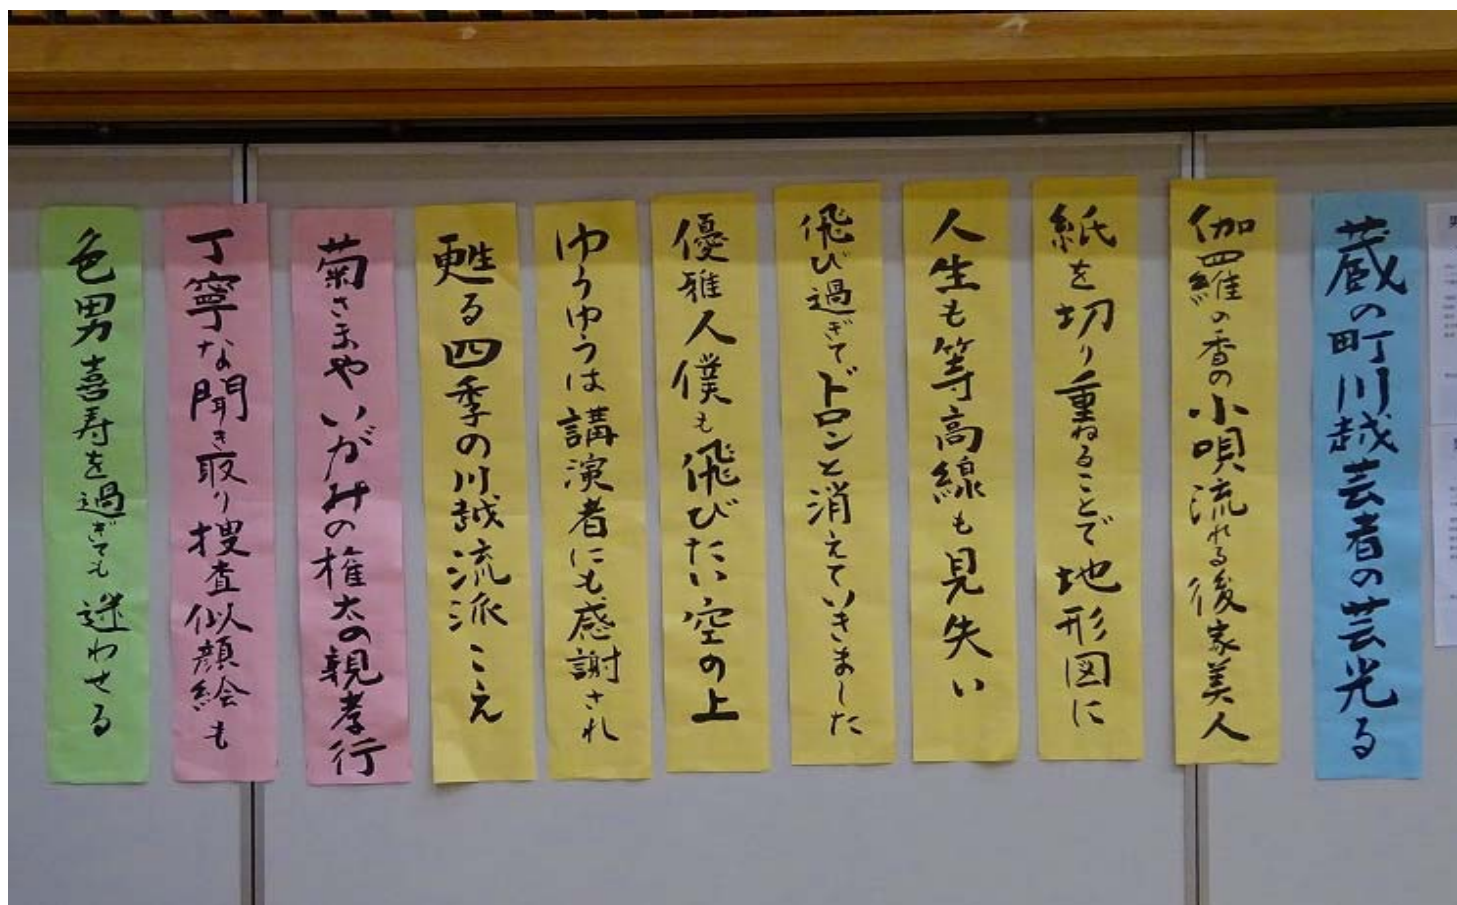 蔵の町川越芸者の芸光る
伽羅の香の小唄流れる後家美人
紙を切り重ねることで地形図に
人生も等高線も見失い
飛び過ぎてドロンと消えていきました
優雅人僕も飛びたい空の上
ゆうゆうは講演者にも感謝され
甦る四季の川越流派こえ
菊さまやいがみの権太の親孝行
丁寧な聞き取り捜査似顔絵も
色男喜寿を過ぎても迷わせる